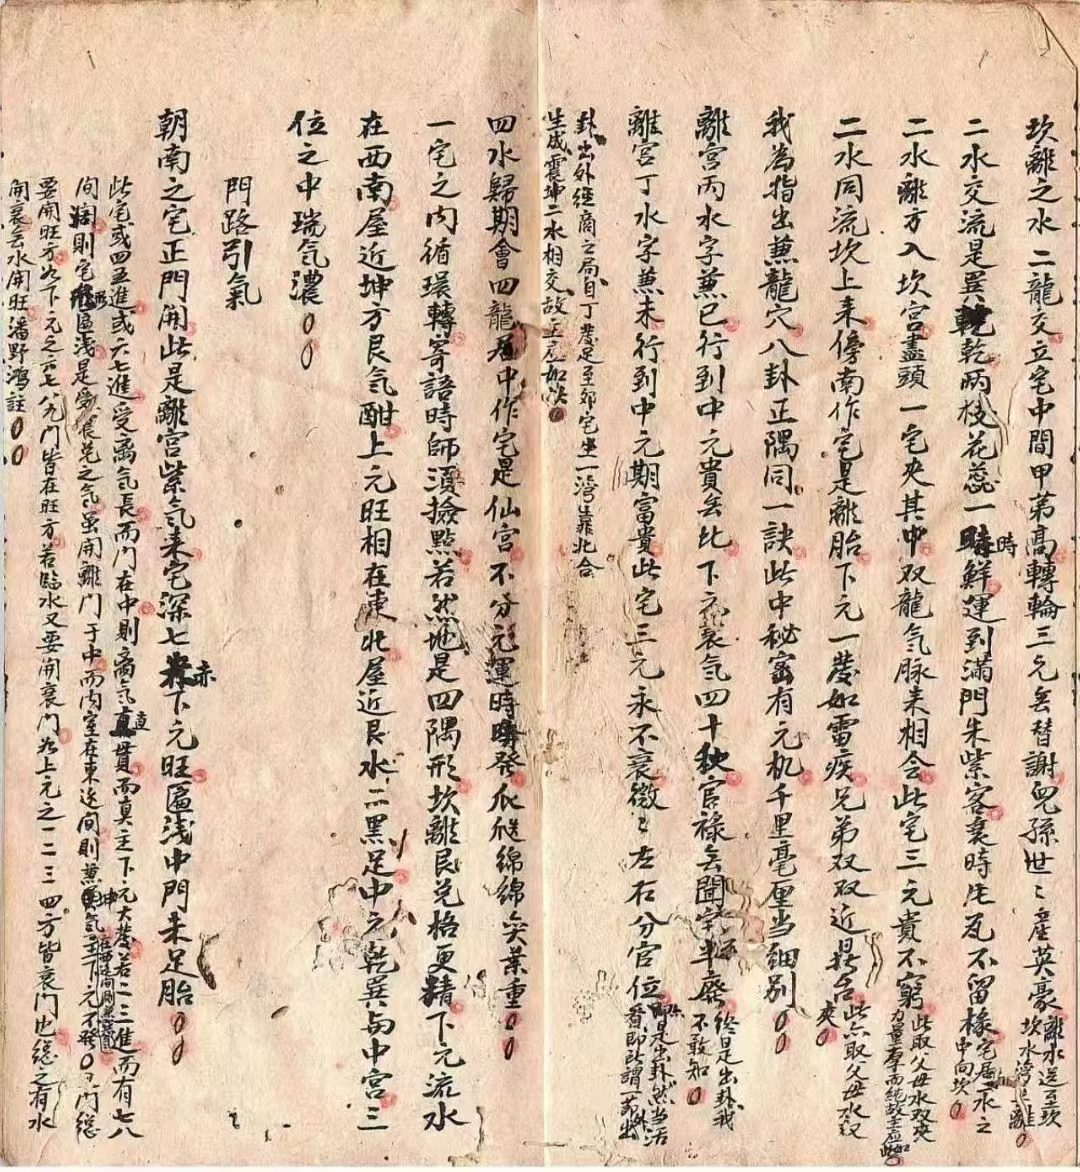 坎離之水二龍交立宅中間甲第高轉輪三元無替謝兒孫世〻產英豪離水送至坎坎水灣〻離
二水交流是巽乾乾兩枝花蕊一時時鮮運到滿門朱紫客衰時片瓦不留椽宅居二水之中向坎
二水離方入坎宮盡頭一宅夾其中双龍气脉来相會此宅三元貴不窮此取父母水双夾力量厚而純故主應如此
二水同流坎上来傍南作宅是離胎下元一發如雷疾兄弟双双近㙜台此亦取父母水双夾
我為指出兼龍穴八卦正隅同一訣此中秘密有元机千里毫厘当細别
離宮丙水字兼巳行到中元貴無比下元衰气四十秋官禄無聞半廢終日是出卦我不敢知
離宮丁水字兼未行到中元期富貴此宅三元永不衰微〻左右分官位是出卦然当活看即所謂
卦出外經商之局自丁發足至郊宅坐一灣靠北合
生成震坤二水相交故主应如此
四水歸期會四龍居中作宅是仙宮不分元運時時發瓜瓞綿綿奕葉重
一宅之内循環轉寄語時師須撿㸃若然地是四隅形坎離艮兑格更精下元流水
在西南屋近坤方艮气酣上元旺相在東北屋近艮水二黑足中元乾巽与中宮三
位之中瑞气濃
門路引氣
朝南之宅正門開此是離宮紫气来宅深七赤下元旺匾浅中門未足胎
此宅或四五進或六七進受离气長而门在中則离气直貫而真主下元大發若二三進而有七八
间濶則宅形匾浅是受長兑之气虽開離门于中而内室在東边间則兼气主下元不發门総
要開旺方如下元之六七八九門皆在旺方若臨水又要開衰门如上元之一二三四方皆衰门也総之有水
開衰無水開旺潘野鴻註